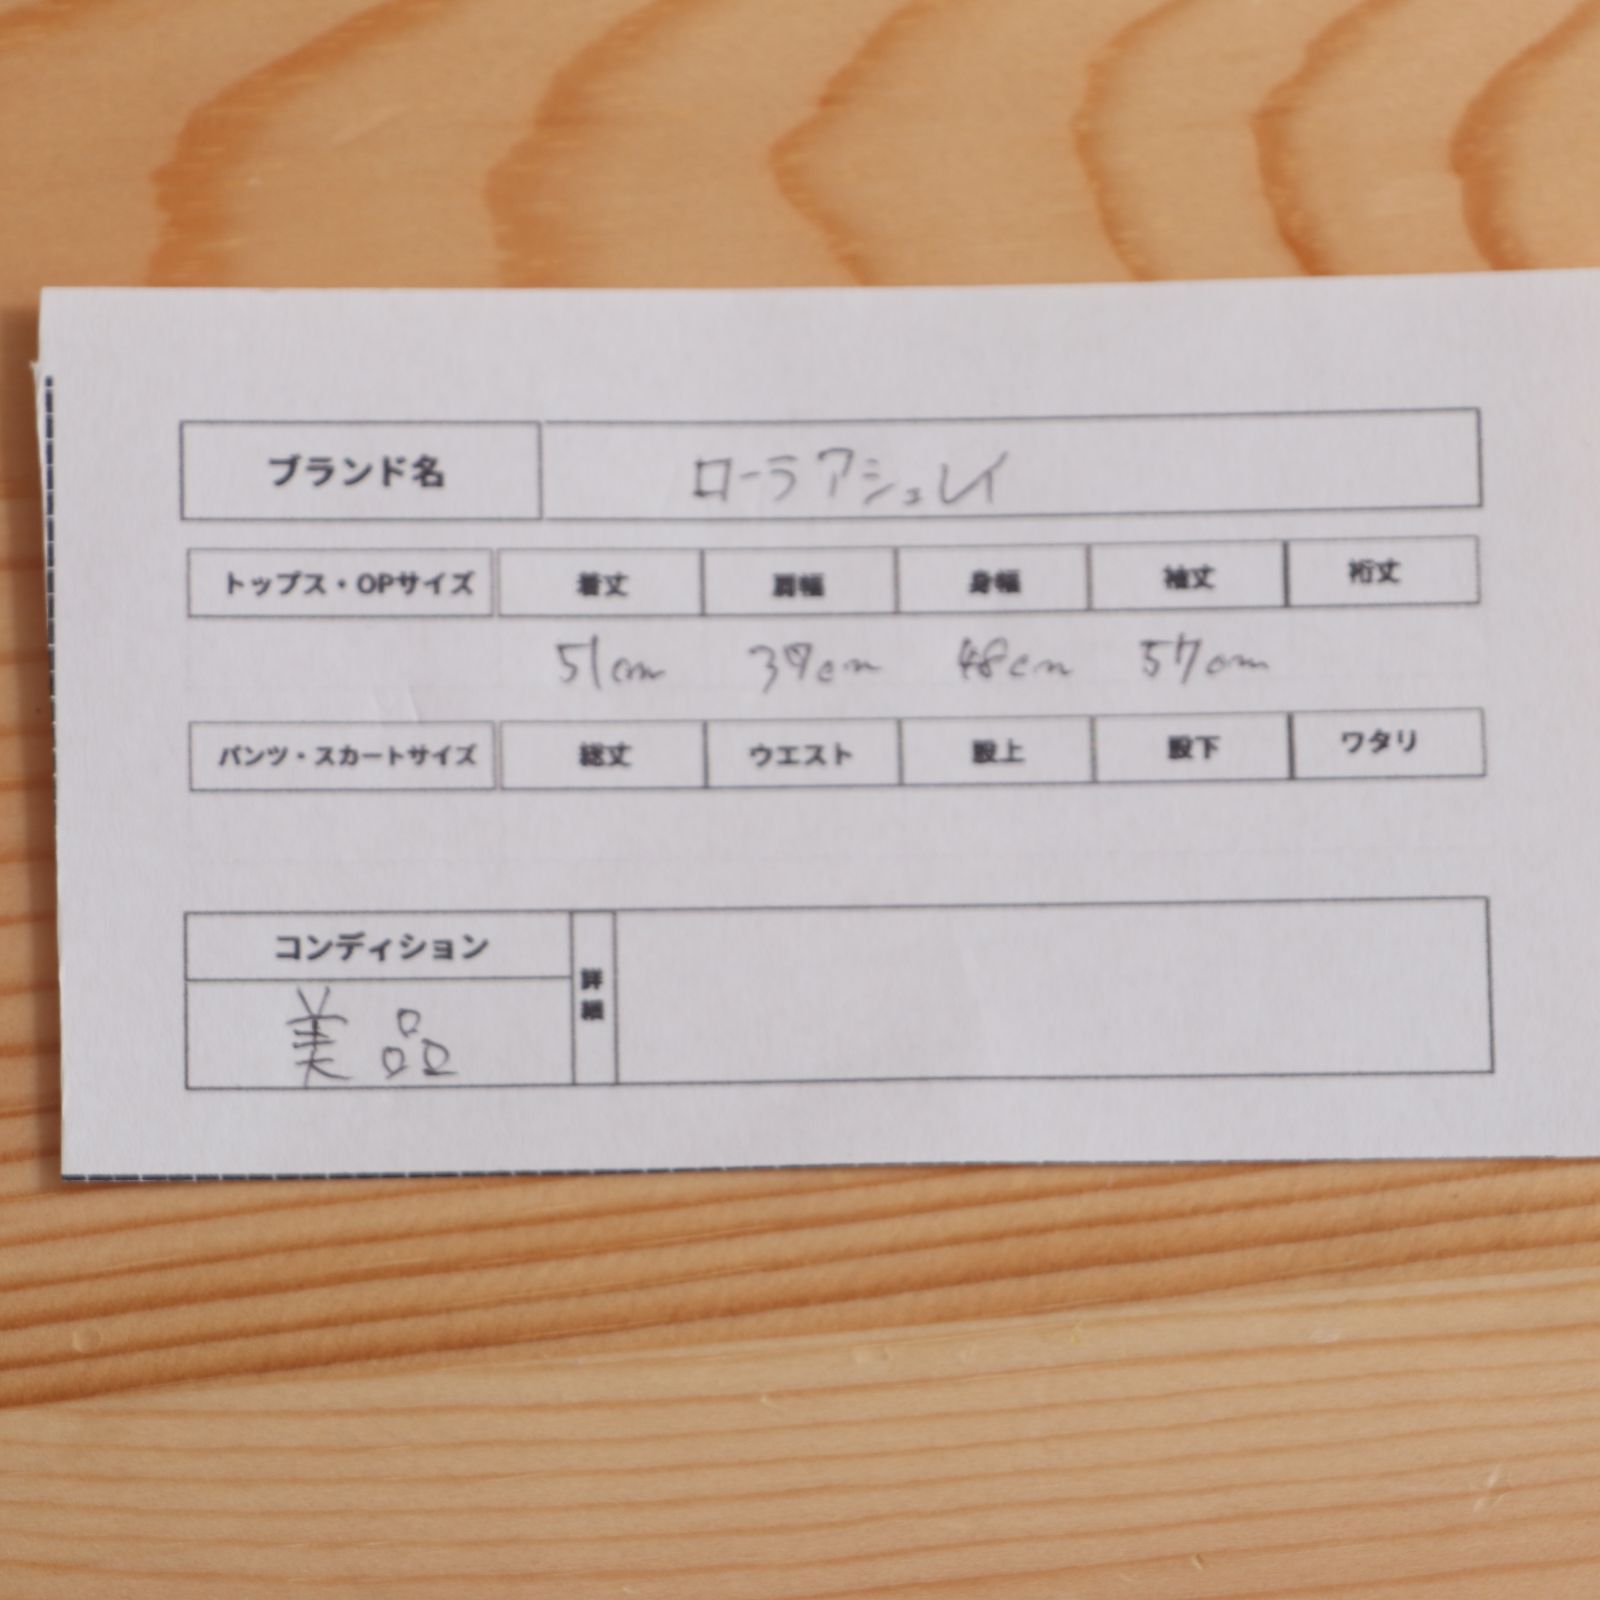 ブランド名 ローラ アシュレイ
トップス・OPサイズ 着丈 肩幅 身幅 袖丈 裄丈
51cm 39cm 48cm 57cm
パンツ・スカートサイズ 総丈 ウエスト 股上 股下 ワタリ
コンディション 詳細
美品